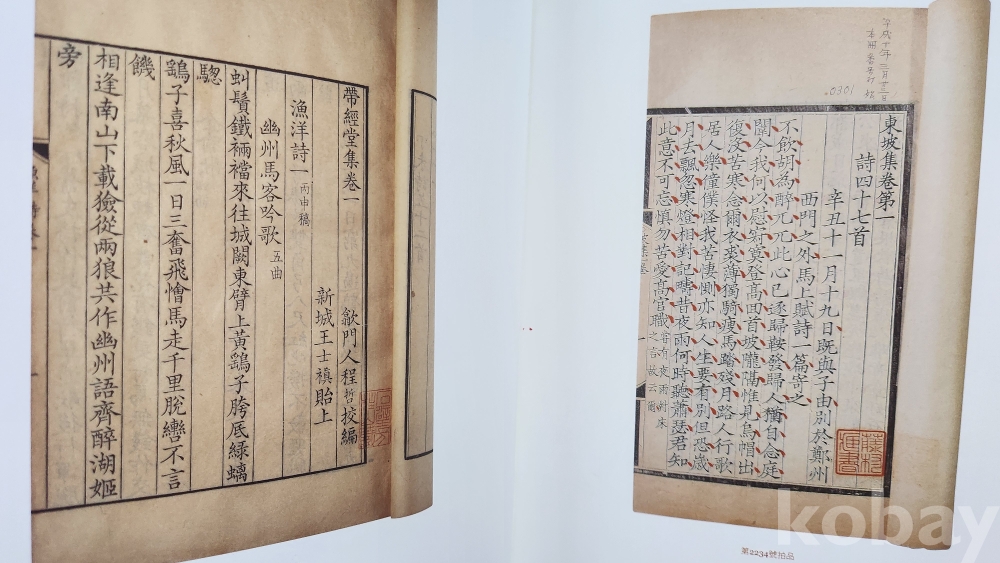 帶經堂集卷一
歙門人程哲校編
新城王士禛貽上
漁洋詩一 丙申稿
幽州馬客吟歌 五曲
虯鬚鐵裲襠來往城闕東臂上黃鷂子胯底綠螭
驄
鷂子喜秋風一日三奮飛憎馬走千里脫轡不言
饑
相逢南山下載獫從兩狼共作幽州語齊醉湖姬
旁
0301
東坡集卷第一
詩四十七首
辛丑十一月十九日既與子由別於鄭州
西門之外馬上賦詩一篇寄之
不飲胡為醉兀兀此心已逐歸鞍發歸人猶自念庭
闈今我何以慰寂寞登高回首坡隴隔惟見烏帽出
復沒苦寒念爾衣裘薄獨騎瘦馬踏殘月路人行歌
居人樂僮僕怪我苦悽惻亦知人生要有別但恐歲
月去飄忽寒燈相對記疇昔夜雨何時聽蕭瑟君知
此意不可忘慎勿苦愛高官職 嘗有夜雨對床之言故云爾
第2234號拍品
kobay